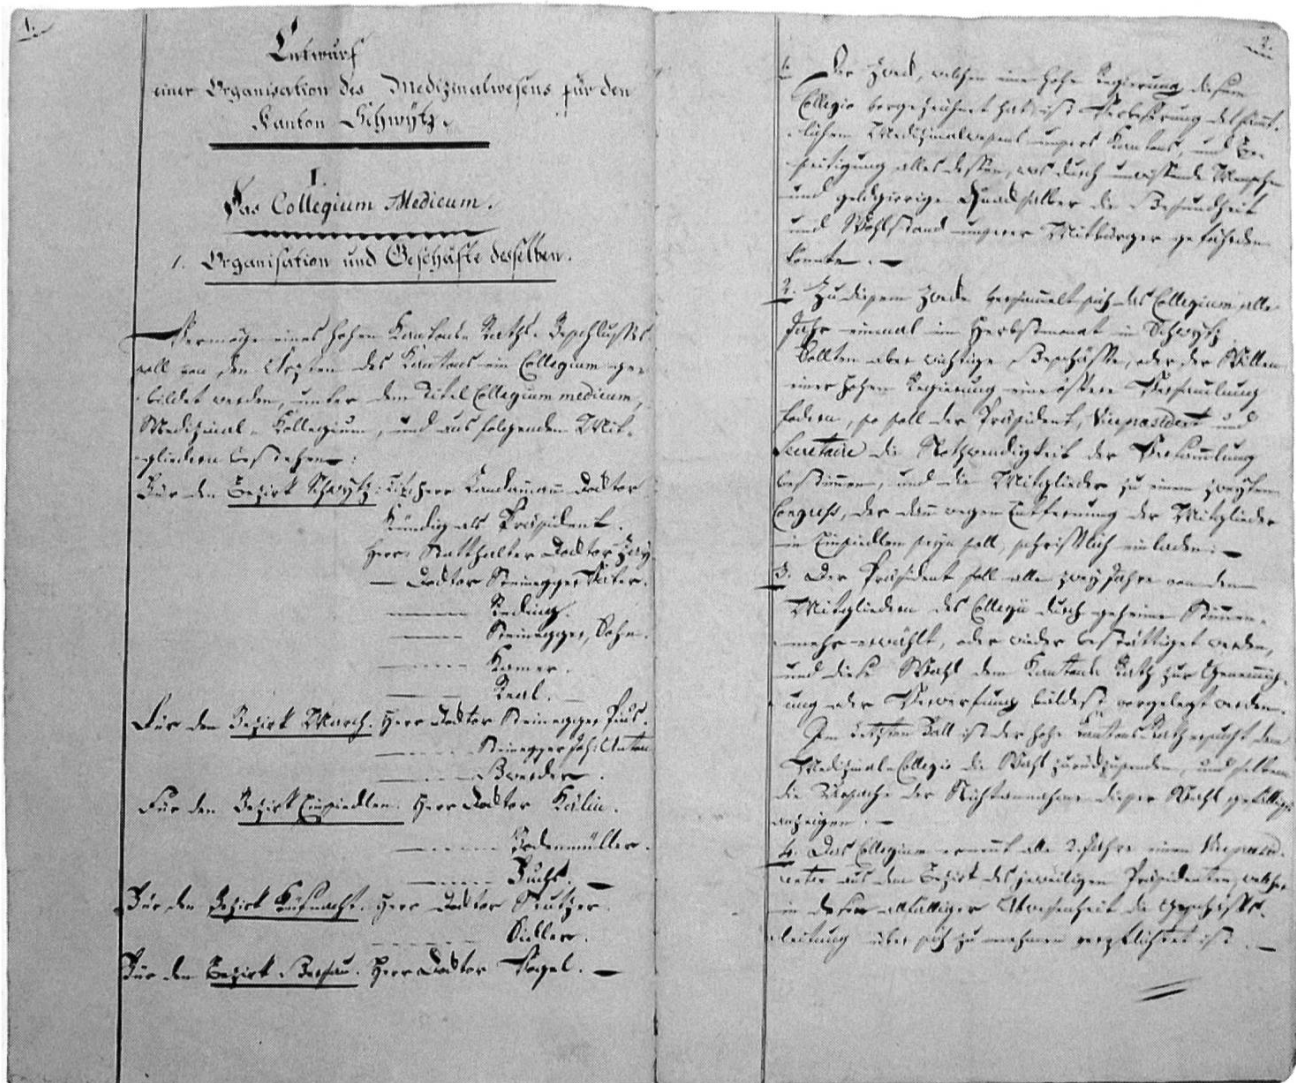 1.
Entwurf
einer Organisation des Medizinalwesens für den
Kanton Schwÿtz.
I.
Das Collegium Medicum.
1. Organisation und Geschäfte desselben.
Vermöge eines hohen Kantons Raths Beschlusses
soll von den Ärzten des Kantons ein Collegium ge-
bildet werden, unter dem Titel Collegium medicum,
Medizinal-Kollegium, und aus folgenden Mit-
gliedern bestehen:
Für den Bezirk Schwÿtz: Herr Landammann Docktor
Kündig als Präsident.
Herr Statthalter Docktor Zaÿ
— Docktor Steinegger Vater.
Reding.
Steinegger, Sohn.
Kamer.
Real.
Für den Bezirk March. Herr Docktor Steinegger
Steinegger Joh: Anton
Für den Bezirk Einsiedlen. Herr Docktor Kälin.
Bodenmüller.
Fuchs. —
Für den Bezirk Küsnacht. Herr Docktor Stutzer.
Sidler.
Für den Bezirk Gersau. Herr Docktor Fasel. —
2.
1. Der Zweck, welchen eine hohe Regierung diesem
Collegio vorgezeichnet hat, ist Verbesserung des sämt-
lichen Medizinalwesens unsers Kantons, und Be-
seitigung alles dessen, was durch unwissende Menschen
und geldgierige Quacksalber die Gesundheit
und Wohlstand unserer Mitbürger gefährden
könnte. —
2. Zu diesem Zwecke versammelt sich das Collegium alle
Jahr einmal im Herbstmonat in Schwÿtz.
Sollten aber wichtige Geschäfte, oder der Willen
einer hohen Regierung eine öftere Versammlung
fodern, so soll der Präsident, Vicepraesident und
Secretaire die Nothwendigkeit der Versammlung
bestimmen, und die Mitglieder zu einem zweÿten
Congress, der dann wegen Entfernung der Mitglieder
in Einsiedlen seÿn soll, schriftlich einladen. —
3. Der Präsident soll alle zweÿ Jahre von den
Mitgliedern des Collegii durch geheime Stimmen-
mehr erwählt, oder wieder bestättiget werden,
und diese Wahl dem Kantons Rath zur Genehmig-
ung oder Verwerfung vorgelegt werden.
Im letzten Fall ist der hohe Kantons Rath ersucht dem
Medizinal-Collegio die Wahl zurückzusenden, und selbem
die Ursache der Nichtannahme dieser Wahl gefälligst
anzeigen. —
4. Das Collegium ernennt alle 2 Jahre einen Vicepraesi-
denten aus dem Bezirk des jeweiligen Präsidenten, welcher
in dessen allfälliger Abwesenheit die Geschäfts-
leitung über sich zu nehmen verpflichtet ist. —